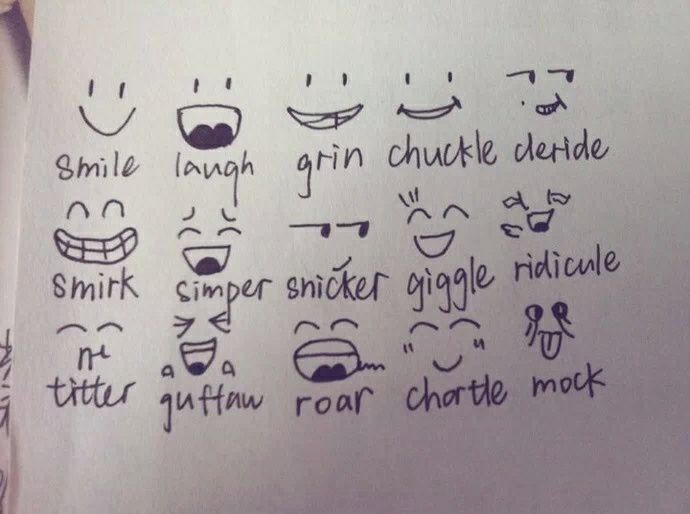 smile laugh grin chuckle deride
smirk simper snicker giggle ridicule
titter guffaw roar chortle mock